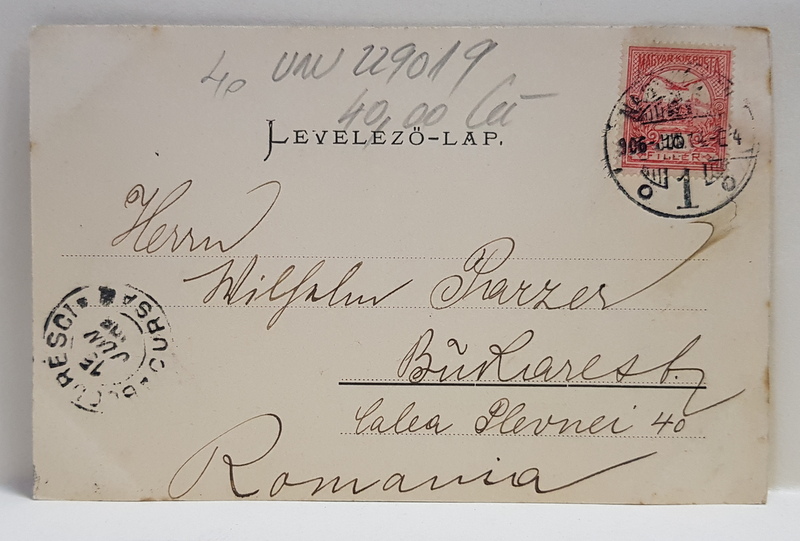 40 UNV 229019
40,00
LEVELEZŐ-LAP.
MAGYAR KIR. POSTA
FILLÉR
906
1
Herrn
Wilhelm Parzer
Bŭkarest
Calea Plevnei 40
Romania
15
JUN